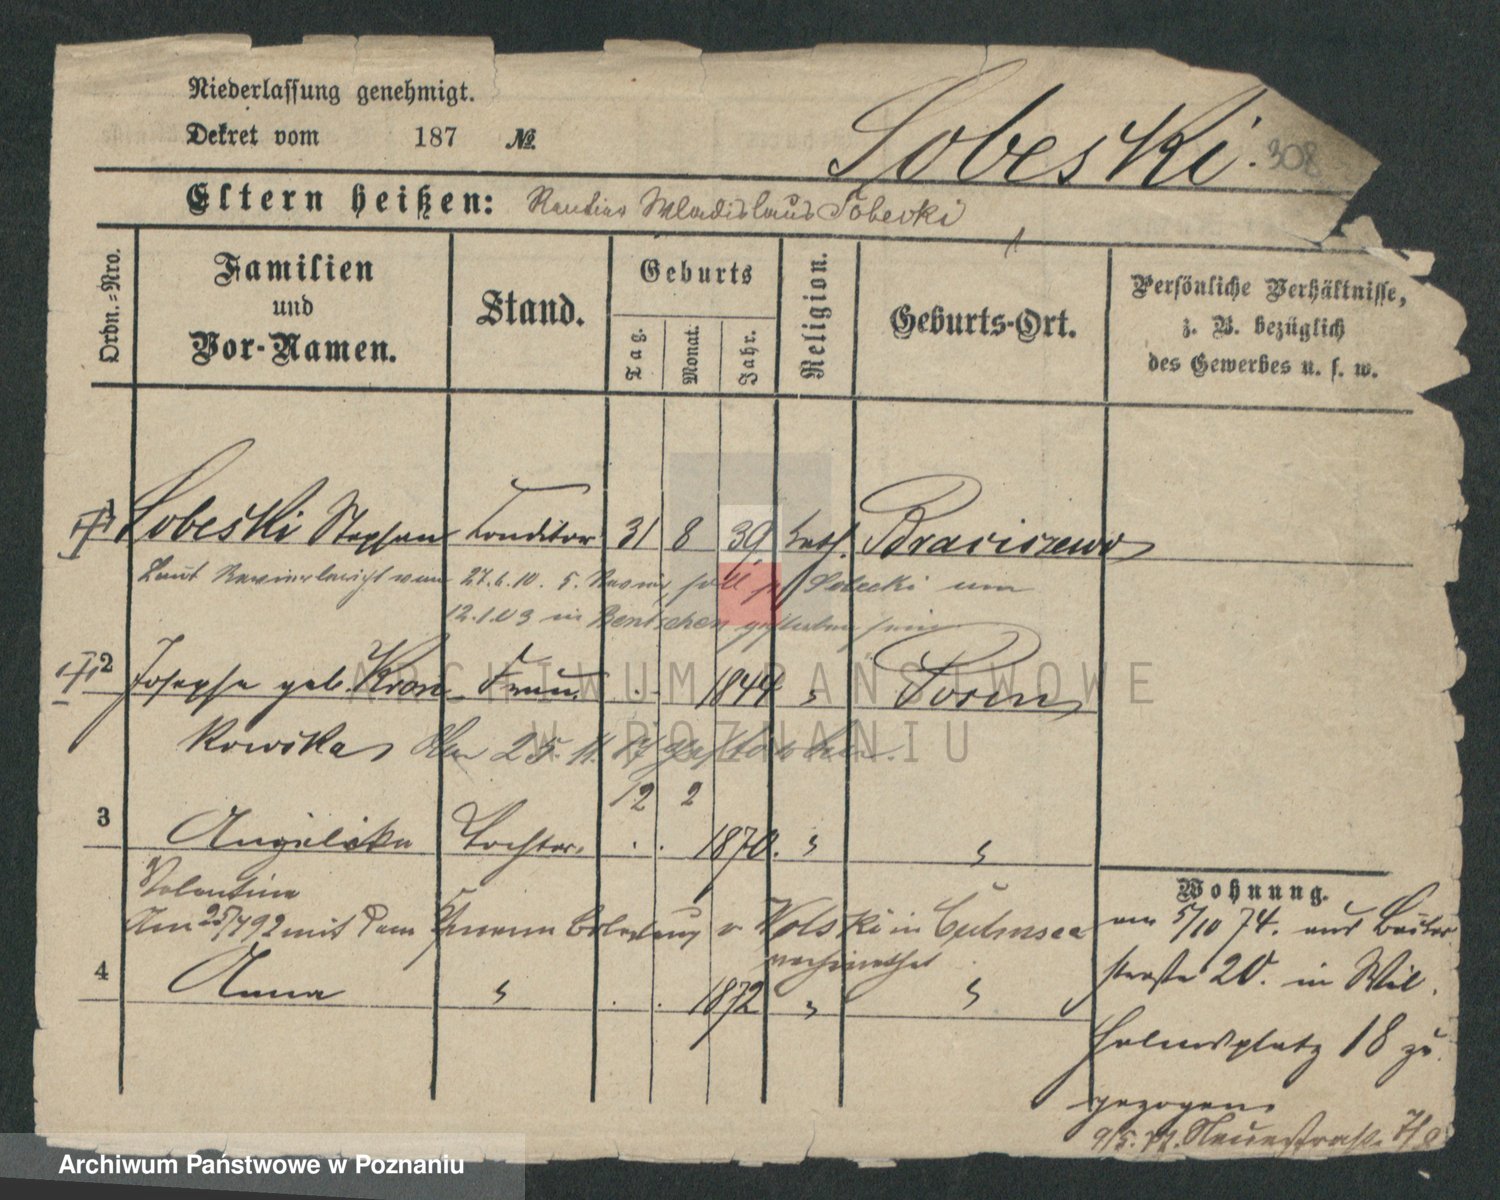 Niederlassung genehmigt.
Dekret vom 187 №
Sobeski. 308
Eltern heißen: Rentier Wladislaus Sobeski
Ordn.=Nro.
Familien und Vor-Namen.
Stand.
Geburts
Tag. Monat. Jahr.
Religion.
Geburts-Ort.
Persönliche Verhältnisse, z. B. bezüglich des Gewerbes u. s. w.
1 Sobeski Stephan Conditor 31 8 39 kath. Braciszewo
Laut Revierbericht vom 27.6.10. 5. Revier soll p Sobecki am
12.1.03 in Bentschen gestorben sein
2 Josepha geb. Kron- Frau . . 1844 " Posen
kowska Am 25.11.17 gestorben.
12 2
3 Angelika Tochter. . . 1870. " "
Valentina
Am 25/7 92 mit dem v Wolski in Culmsee
verheirathet
4 Anna " . . 1872 " "
Wohnung.
am 5/10 74. aus
straße 20. in Wil-
helmsplatz 18 zu-
gezogen
9/5. 77. Neuestraße 7/8
ARCHIWUM PAŃSTWOWE
W POZNANIU
Archiwum Państwowe w Poznaniu